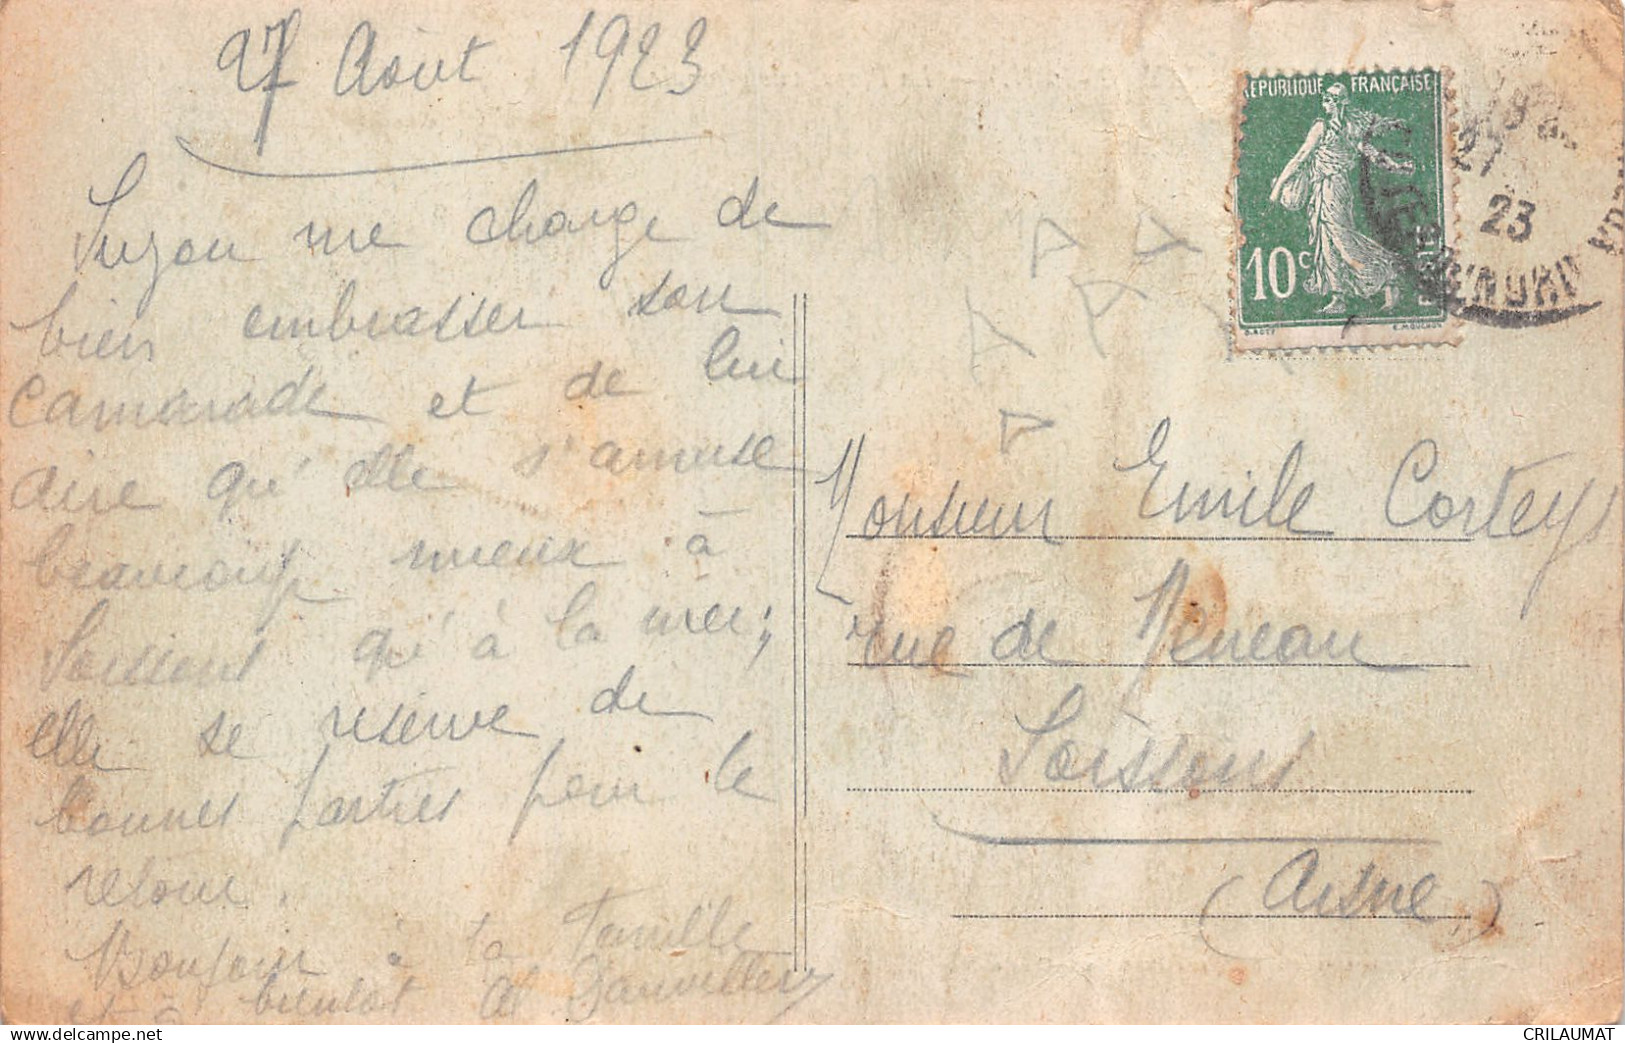 27 Août 1923
Suzon me charge de
bien embrasser son
camarade et de lui
dire qu'elle s'amuse
beaucoup mieux à
Soissons qu'à la mer;
elle se réserve de
bonnes parties pour le
retour.
Bonjour à ta famille
et à bientôt
REPUBLIQUE FRANÇAISE
10c
POSTES
27
23
Monsieur Emile Cortey
rue de Meneau
Soissons
(Aisne)
CRILAUMAT